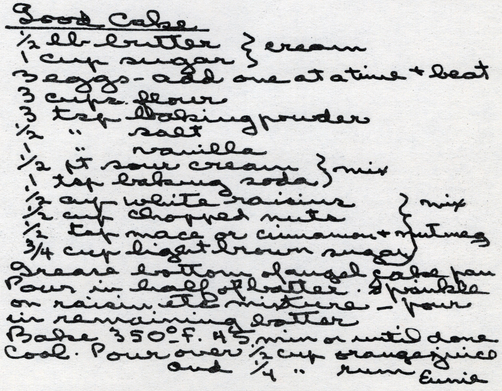 Good Cake
1/2 lb butter } cream
1 cup sugar
3 eggs - add one at a time + beat
3 cups flour
3 tsp baking powder
1/2 " salt
1 " vanilla
1/2 pt sour cream } mix
1 tsp baking soda
1/2 cup white raisins } mix
1/2 cup chopped nuts
1/2 tsp mace or cinnamon + nutmeg
3/4 cup light brown sugar
Grease bottom of angel cake pan
Pour in half of batter. Sprinkle
on raisin etc mixture - pour
in remaining batter
Bake 350° F. 45 min or until done
Cool. Pour over 1/2 cup orange juice
and 1/4 " rum Eunie